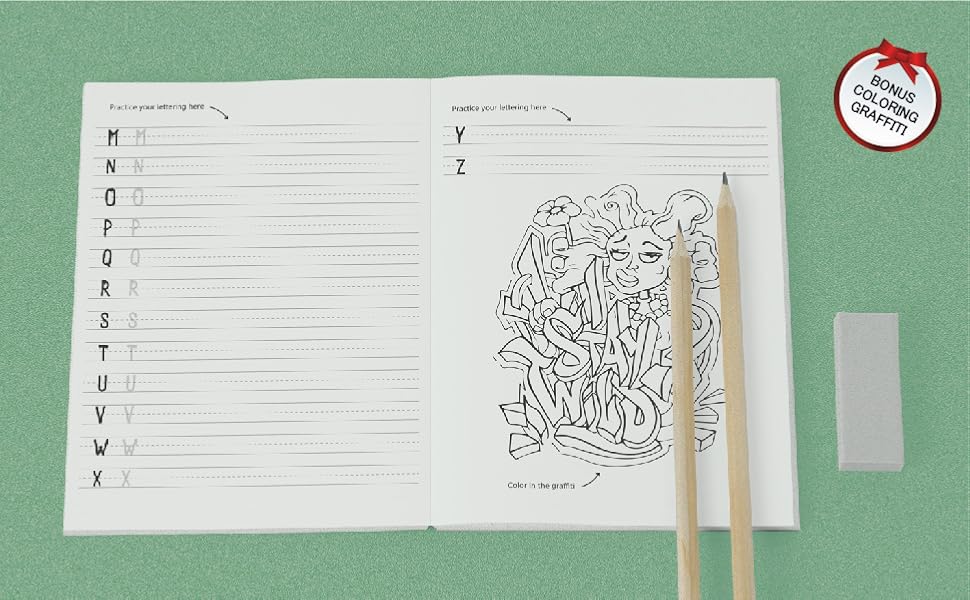 Practice your lettering here
M M
N N
O O
P P
Q Q
R R
S S
T T
U U
V V
W W
X X
Practice your lettering here
Y
Z
STAY
WILD
Color in the graffiti
BONUS
COLORING
GRAFFITI